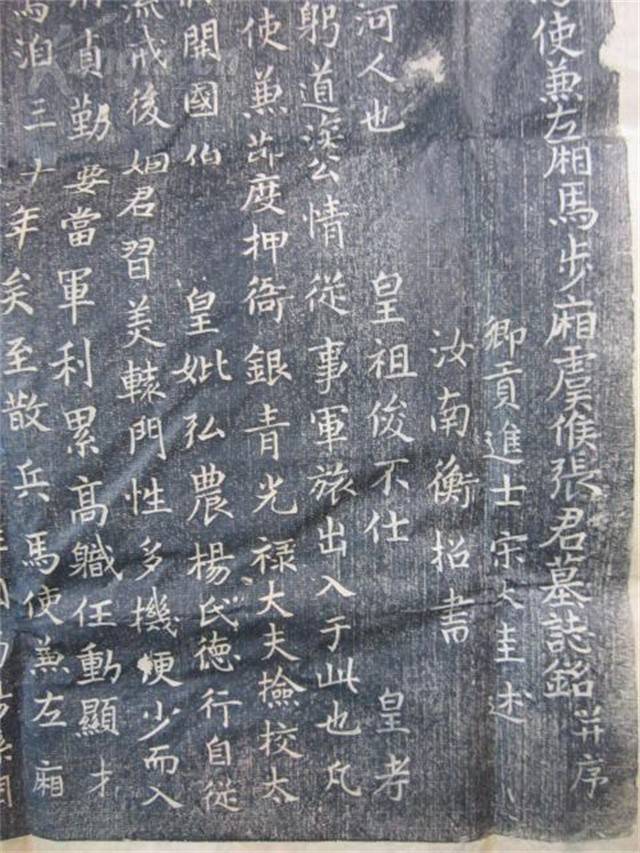 使兼左厢馬步廂虞候張君墓誌銘并序
鄉貢進士宋 圭述
汝南衡招書
河人也 皇祖俊不仕 皇考
躬道深公情從事軍旅出入于此也凡
使兼節度押衙銀青光禄大夫撿校太
開國伯 皇妣弘農楊氏德行自從
流戒後姻君習美轅門性多機便少而入
貞勤安當軍利累高職任動顯才
馬泊三十年矣至散兵馬使兼左廂